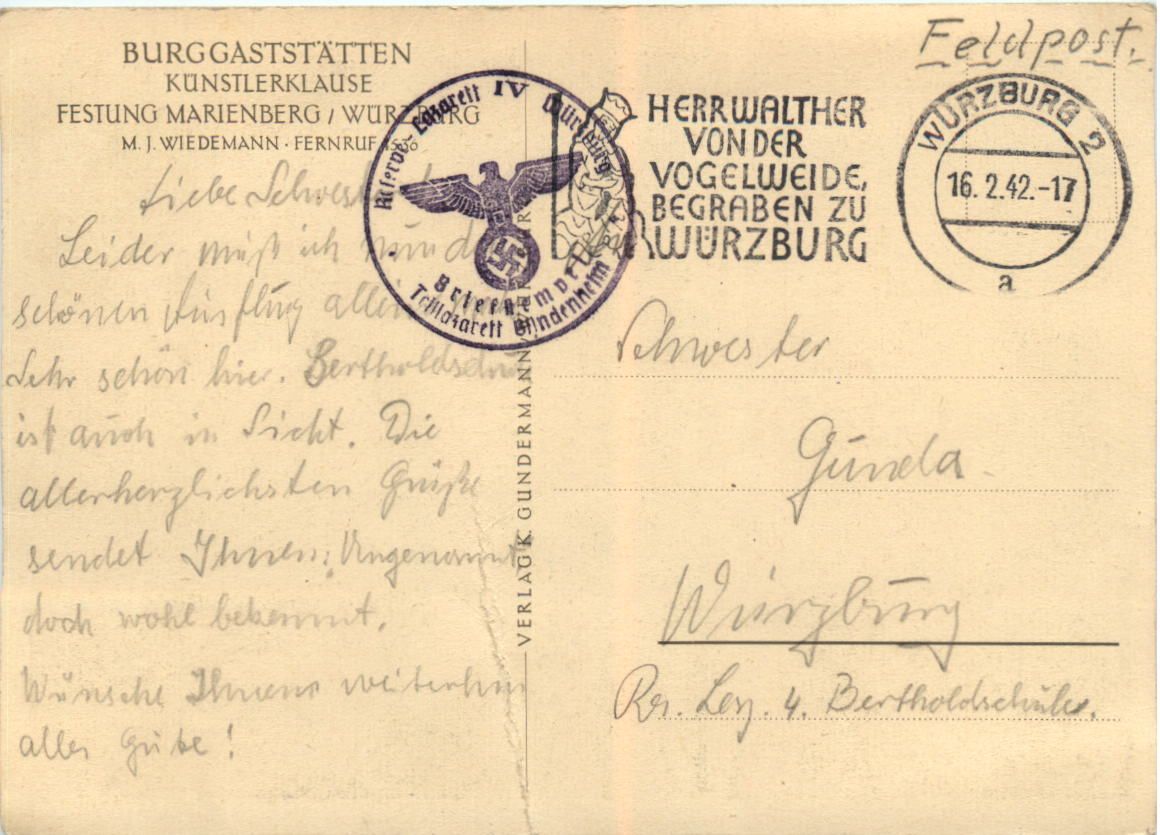 BURGGASTSTÄTTEN
KÜNSTLERKLAUSE
FESTUNG MARIENBERG / WÜRZBURG
M. J. WIEDEMANN · FERNRUF
Liebe
Leider muß ich nun
schönen Ausflug allein
Sehr schön hier.
ist auch in Sicht. Die
allerherzlichsten Grüße
sendet Ihnen: Ungenannt
doch wohl bekannt.
Wünsche Ihnen weiterhin
alles Gute!
Reserve-Lazarett IV Würzburg
Briefstempel
Teillazarett
VERLAG K. GUNDERMANN
Feldpost.
HERR WALTHER
VON DER
VOGELWEIDE,
BEGRABEN ZU
WÜRZBURG
WÜRZBURG 2
16.2.42.-17
a
Schwester
Gunda
Würzburg
Res. Laz. 4. Bertholdschule.